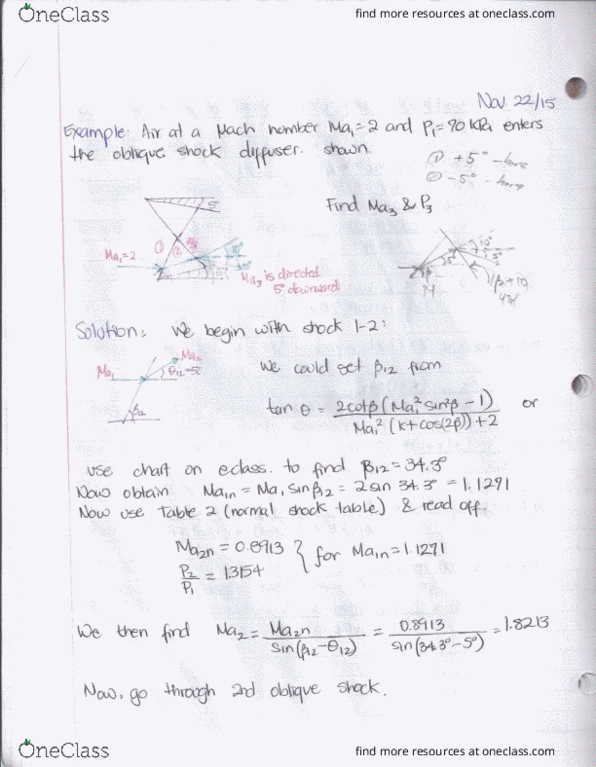 OneClass
find more resources at oneclass.com
Nov 22/15
Example: Air at a Mach number Ma₁=2 and P₁=90 kPa enters
the oblique shock diffuser shown.
① +5°
② -5°
Find Ma₃ & P₃
Ma₁=2
① ②
Ma₃ is directed
5° downward
10°
5°
Solution: We begin with shock 1-2:
Ma₁
Ma₂
θ₁₂=5°
β₁₂
We could get β₁₂ from
tan θ = 2cotβ(Ma₁²sin²β - 1) / Ma₁²(k+cos(2β))+2 or
use chart on eclass. to find β₁₂ = 34.3°
Now obtain Ma₁n = Ma₁ sinβ₁₂ = 2 sin 34.3° = 1.1271
Now use Table 2 (normal shock table) & read off.
Ma₂n = 0.8913
P₂/P₁ = 1.3154
} for Ma₁n = 1.1271
We then find Ma₂ = Ma₂n / sin(β₁₂-θ₁₂) = 0.8913 / sin(34.3°-5°) = 1.8213
Now, go through 2nd oblique shock.
OneClass
find more resources at oneclass.com